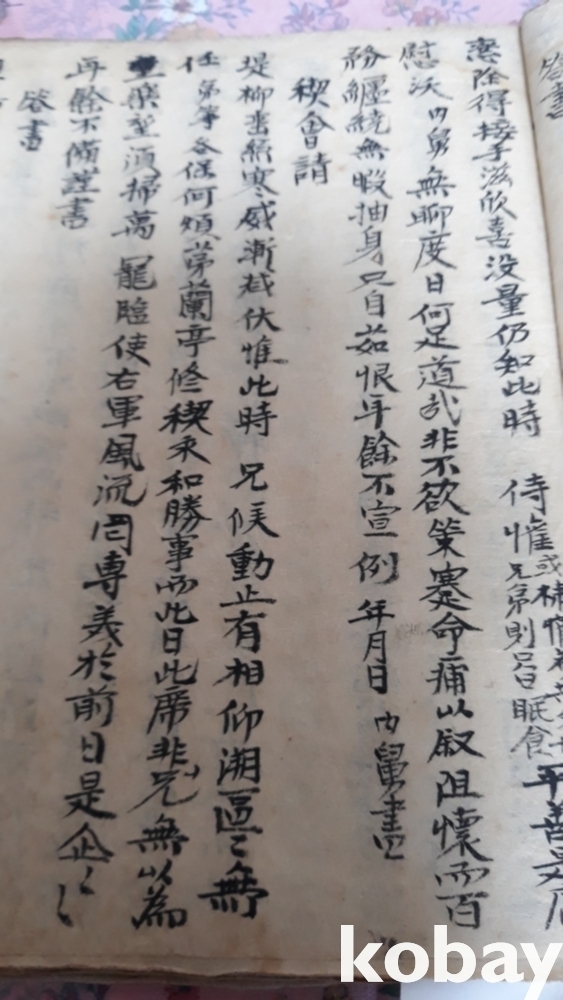 答書
平善是
侍惟或
兄弟則曰眠食
際得接手滋欣喜沒量仍知此時
慰沃內舅無聊度日何足道哉非不欲策蹇命痡以叙阻懷而百
務纏繞無暇抽身只自茹恨耳餘不宣例年月日內舅書
稧會請
堤柳舊緑寒威漸越伏惟此時兄候動止有相仰溯區〻無
任弟等各保何煩第蘭亭修稧永和勝事而此日此席非兄無以為
樂玆須掃萬罷臨使右軍風流罔專美於前日是企〻〻
耳餘不備謹書
答書
kobay